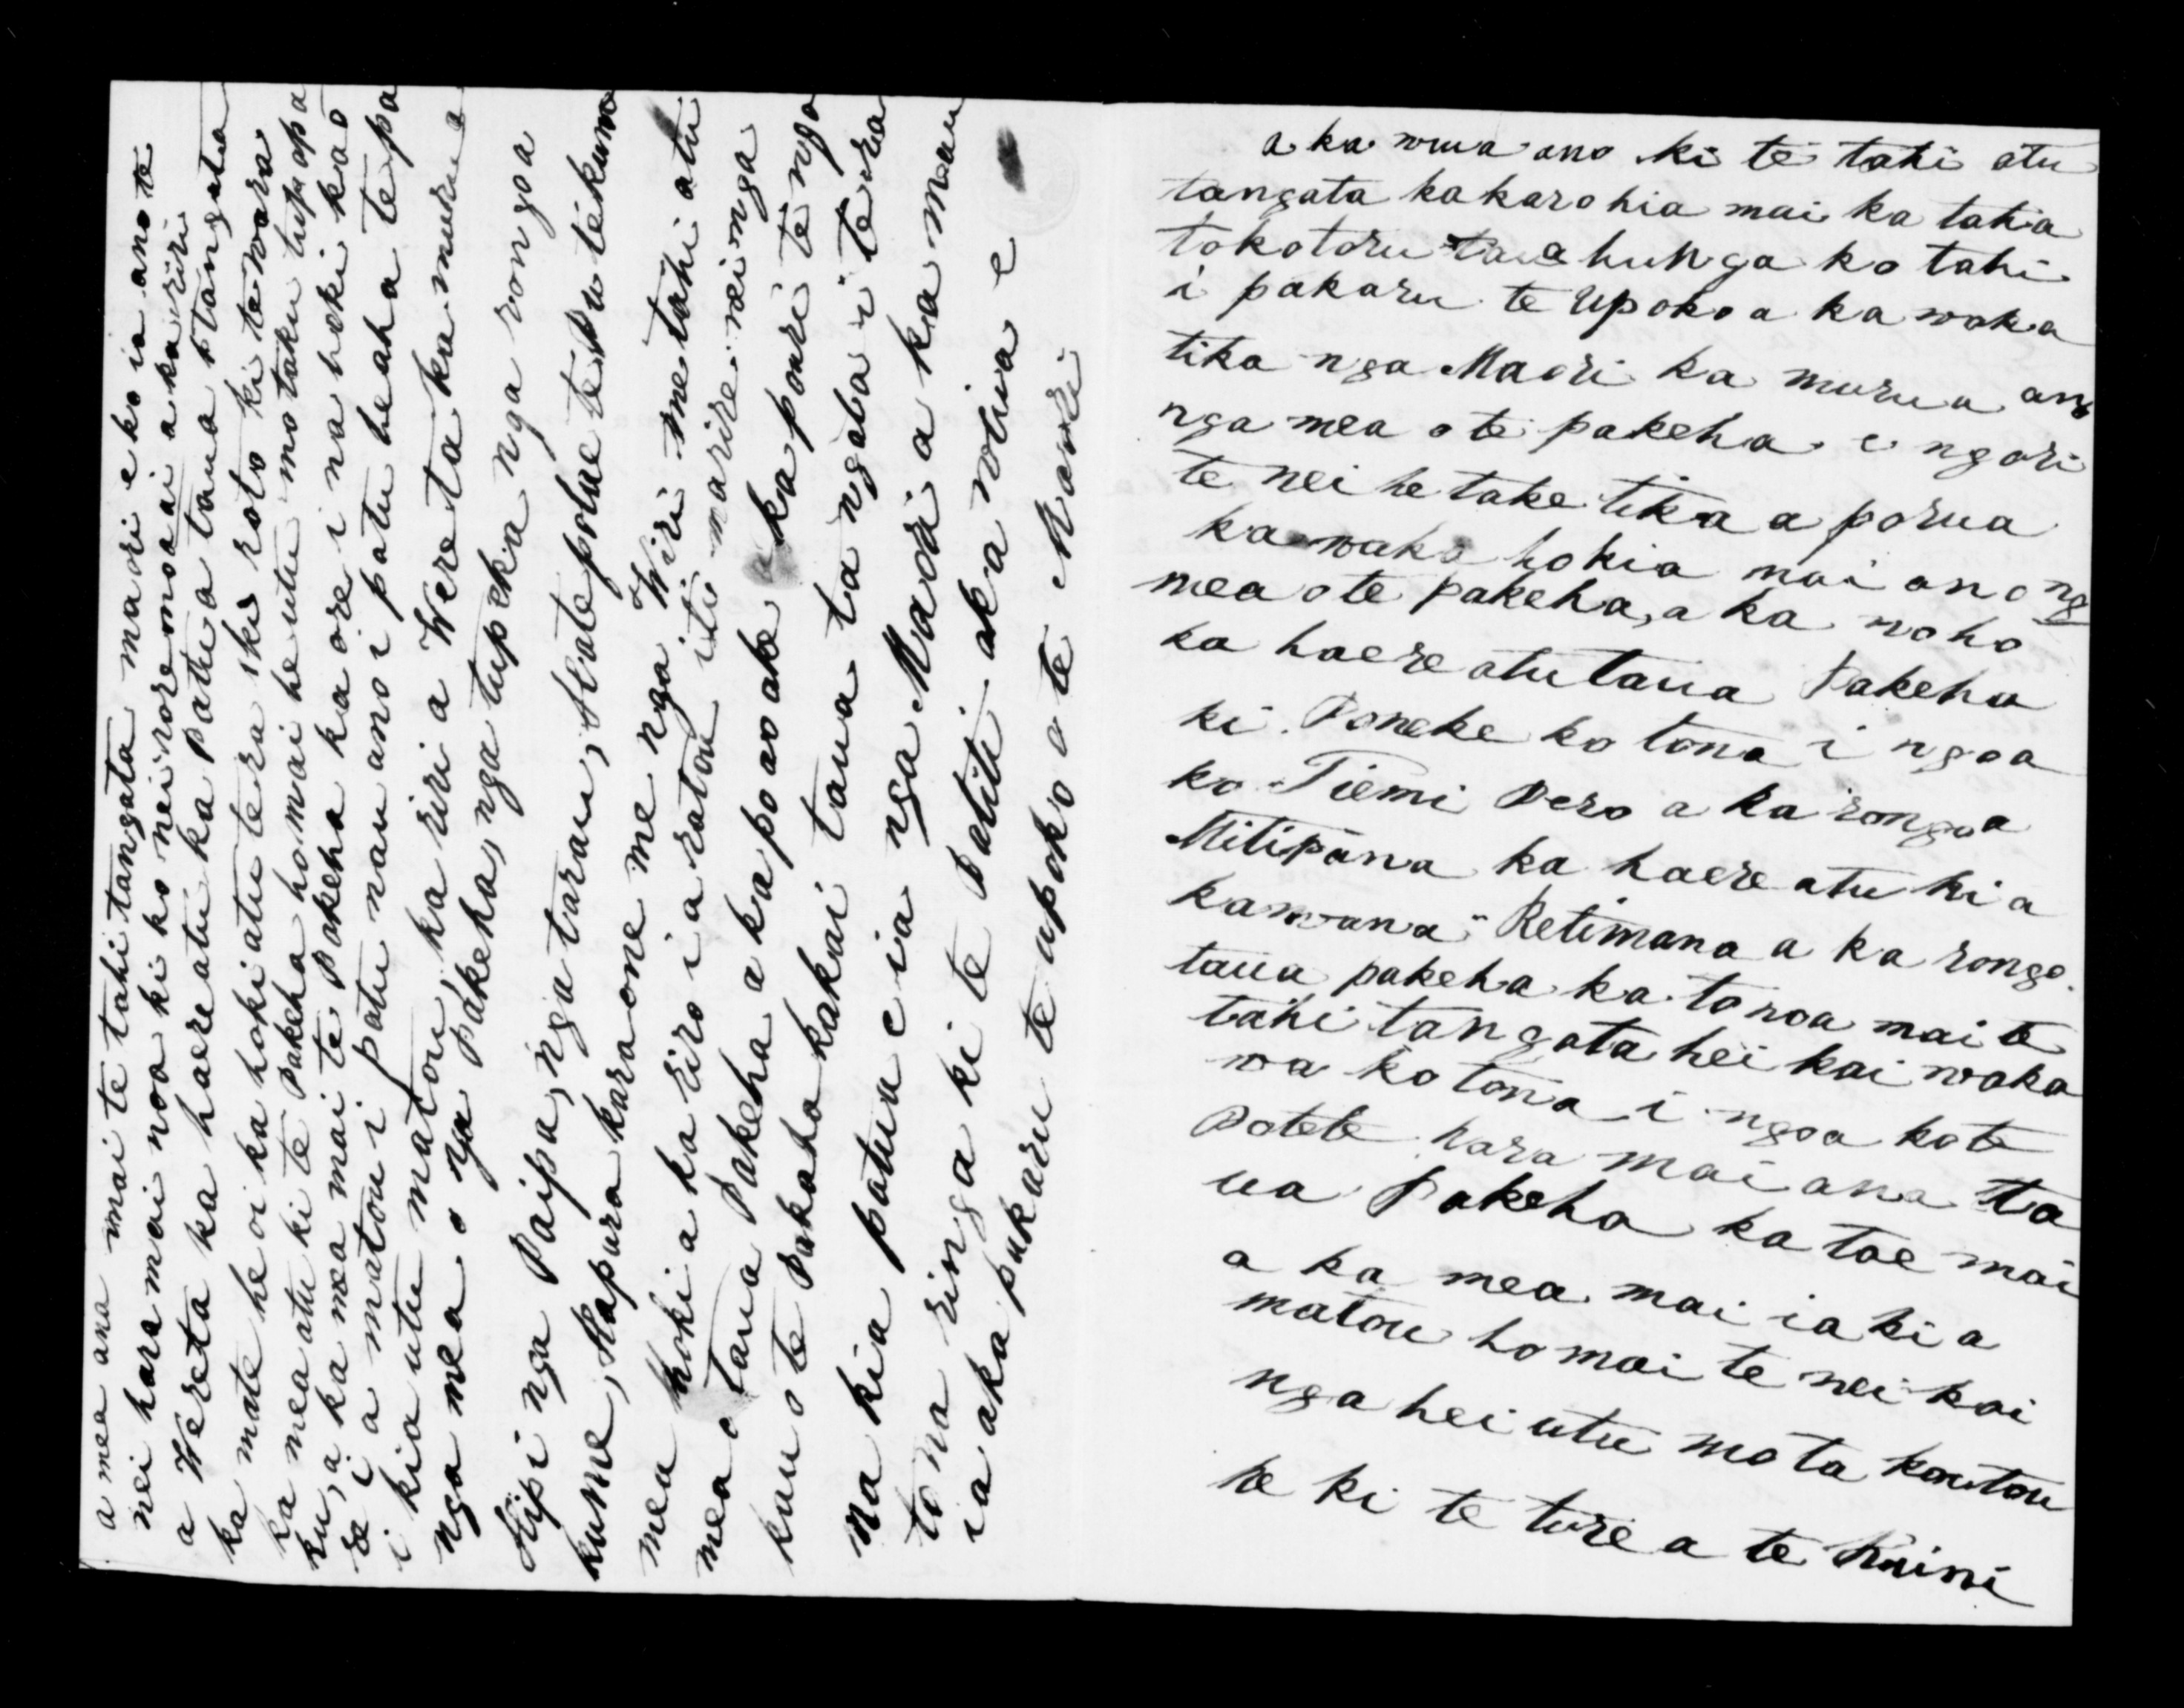 a mea ana mai te tahi tangata maori e ko ia ano te
nei hara mai noa ki ko nei nore mo ai a ka riri
a Wereta ka haere atu ka Patu a taua tangata
ka mate he oi ka hoki atu te ra iki roto ki te ware
ka mea atu ki te Pakeha homai he utu mo taku tupapa
ku, a ka mea mai te Pakeha kaore i na hoki kao
re i a matou i patu nau ano i patu he aha te pa
i kia utu matou, ka riri a Wereta ka murua
nga mea o nga Pakeha, nga tupeka nga rongoa
Hipi nga Paipa, nga tarau, Hate potae te Pu te kume
kume, Kapura karaone me nga Wiri me tahi atu
mea hoki a ka riro i a ratou i tu marire nei nga
mea o taua Pakeha a ka po ao ake a ka pouri te nga
kau o te Pakeha ka kai taua tangata i te ra
na kia patua e ia nga Maori a ka mau
tona ringa ki te Patiti a ka rotua e
ia a ka pakaru te upoko o te Maori
a ka rua ano ki te tahi atu
tangata ka karohia mai ka tahia
tokotoru taua hunga ko tahi
i pakaru te Upoko a ka waka
tika nga Maori ka murua ano
nga mea o te pakeha e ngari
te nei he take tika a porua
ka waka hokia mai ano ng
mea o te pakeha, a ka noho
ka haere atu taua Pakeha
ki Poneke ko tona i ngoa
ko Tiemi Pero a ka rongo a
Mitipana ka haere atu ki a
kawana Retimana a ka rongo
taua pakeha ka tonoa mai te
tahi tangata hei kai waka
wa ko tona i ngoa ko te
Potete hara mai ana ta
ua Pakeha ka tae mai
a ka mea mai ia ki a
matou ho mai te nei kai
nga hei utu mo ta koutou
he ki te ture a te Kuini